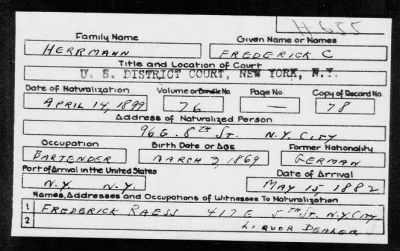 H 655
Family Name Given Name or Names
HERRMANN FREDERICK C
Title and Location of Court
U. S. DISTRICT COURT, NEW YORK, N.Y.
Date of Naturalization Volume or Bundle No. Page No. Copy of Record No.
APRIL 14, 1899 76 — 78
Address of Naturalized Person
96 E. 8TH ST. N.Y. CITY
Occupation Birth Date or Age Former Nationality
BARTENDER MARCH 3, 1869 GERMAN
Port of Arrival in the United States Date of Arrival
N.Y. N.Y. MAY 15 1882
Names, Addresses and Occupations of Witnesses To Naturalization
1 FREDERICK RAESS 417 E 5TH ST. N.Y. CITY
2 LIQUER DEALER